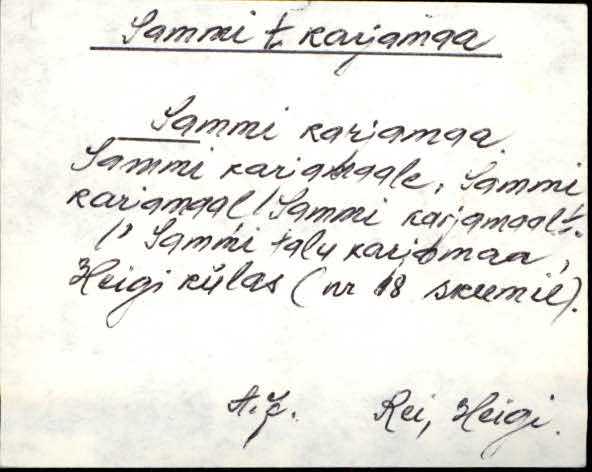 Sammi t karjamaa
Sammi karjamaa.
Sammi karjamaale, Sammi
karjamaal / Sammi karjamaalt.
/, Sammi talu karjamaa,
Heigi külas (nr 18 skeemil).
Rei, Heigi.